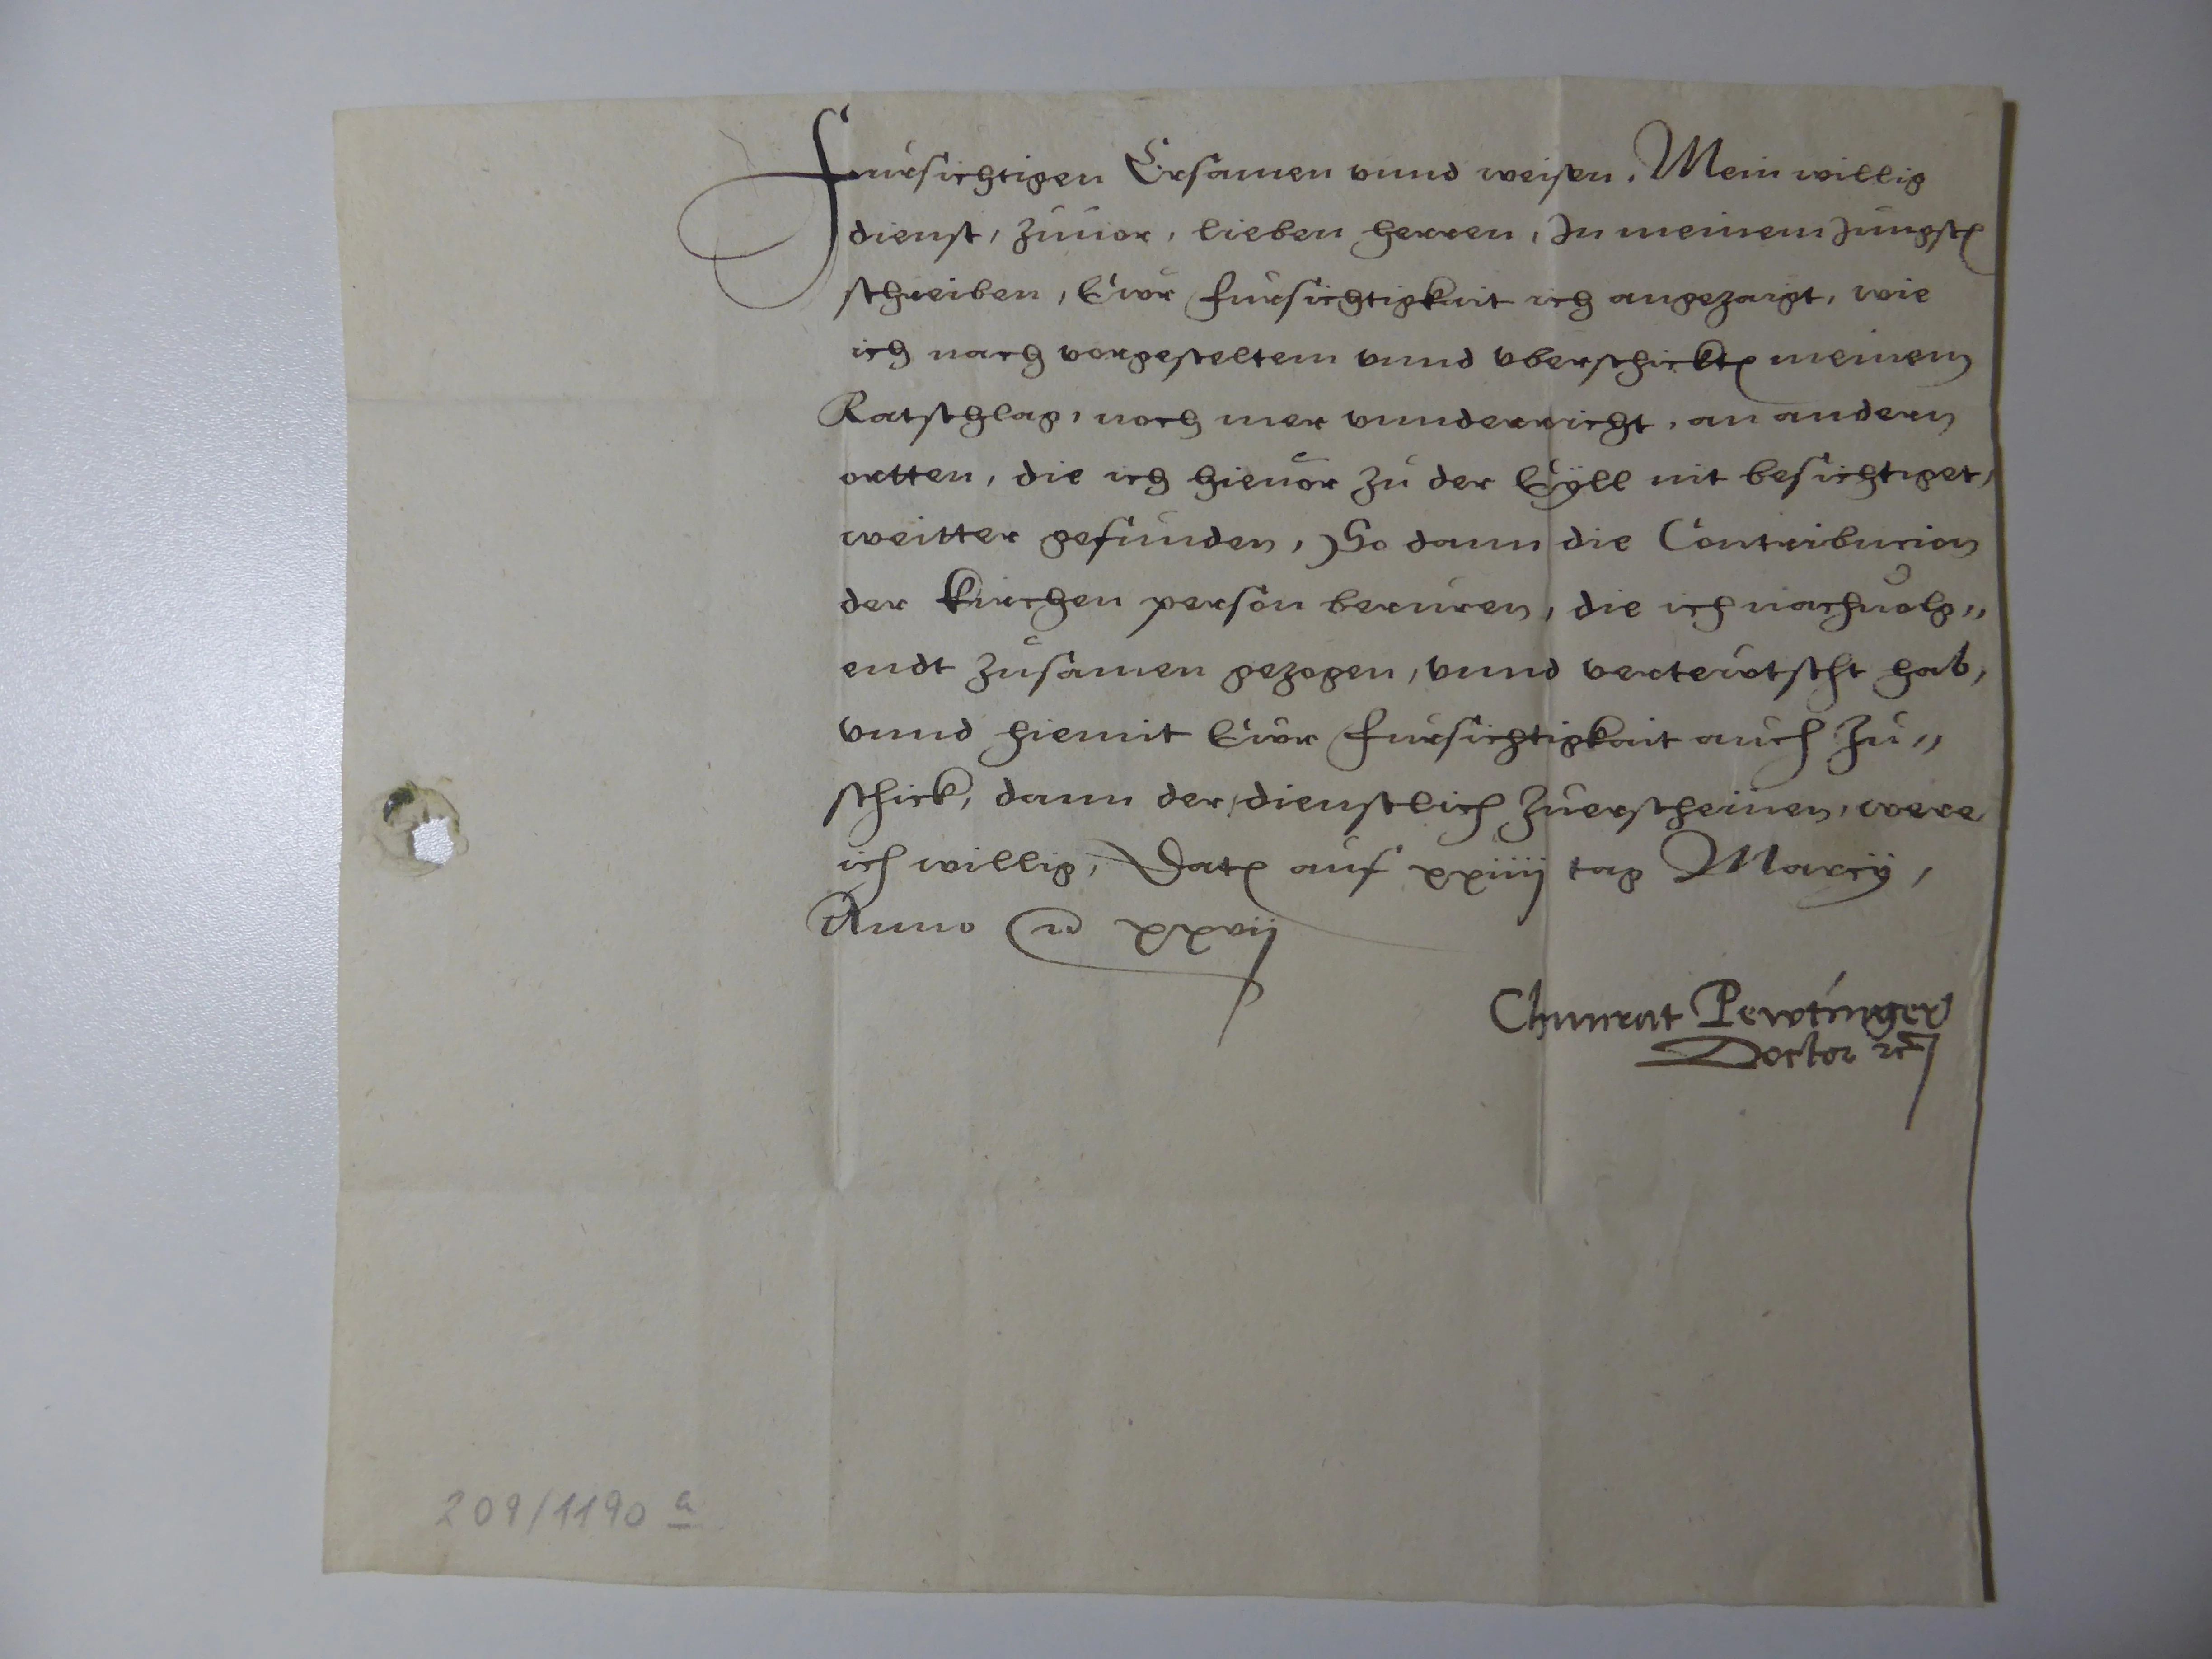 Fursichtigen Ersamen vnnd weisen. Mein willig
dienst, zuuor, lieben herren, In meinem Jungstn
schreiben, Ewr fursichtigkait ich angezaigt, wie
ich nach vorgesteltem vnnd vberschicktn meinem
Ratschlag, noch mer vnnderricht, an andern
ortten, die ich hieuor zu der Eyll nit besichtiget,
weitter gefunden, So dann die Contribucion
der kirchen person beruren, die ich nachuolg„
endt zusamen gezogen, vnnd verteutscht hab,
vnnd hiemit Ewr fursichtigkait auch zu„
schick, dann der, dienstlich zuerscheinen, were
ich willig, Datn auf xxiiij tag Marcij,
Anno xxvij
Chunrat Pewtinger
Doctor rc
209/1190 a